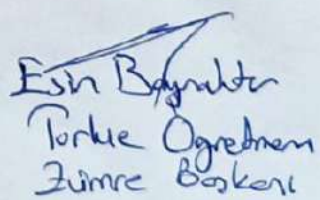 Esin Bayraktar
Türkçe Öğretmeni
Zümre Başkanı